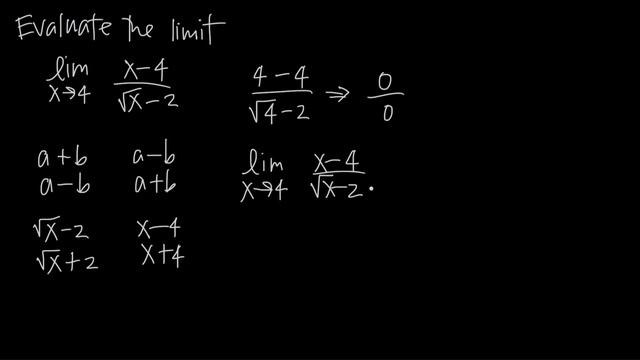 Evaluate the limit
lim x→4 (x-4)/(√x-2)    (4-4)/(√4-2) ⇒ 0/0
a+b    a-b
a-b    a+b
lim x→4 (x-4)/(√x-2) ·
√x-2    x-4
√x+2    x+4